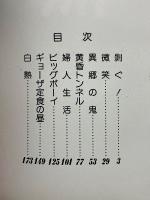 目次
剝ぐ! 3
微笑 29
異郷の鬼 53
黄昏トンネル 77
婦人生活 101
ビッグボーイ 125
ギョーザ定食の昼 149
白熱 173